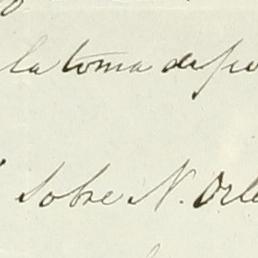 la toma de
sobre N. Orle